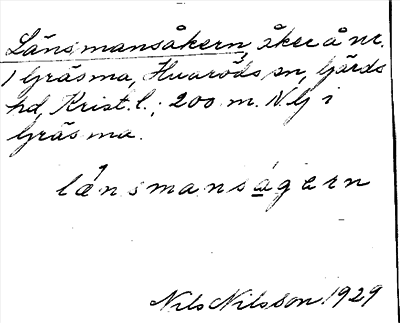 Länsmansåkern, åker å nr.
1 Gräsma, Huaröds sn, Gärds
hd, Krist. l.; 200 m. N Gj i
Gräsma.
länsmansågern
Nils Nilsson 1929